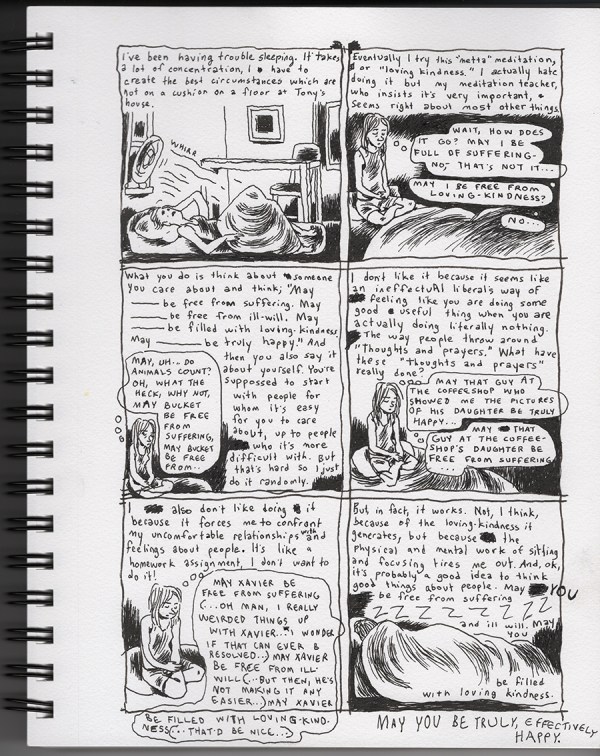 I've been having trouble sleeping. It takes
a lot of concentration, I have to
create the best circumstances which are
not on a cushion on a floor at Tony's
house.
WHIRR
Eventually I try this "metta" meditation,
or "loving kindness." I actually hate
doing it but my meditation teacher,
who insists it's very important,
seems right about most other things.
WAIT, HOW DOES
IT GO? MAY I BE
FULL OF SUFFERING-
NO, THAT'S NOT IT...
MAY I BE FREE FROM
LOVING-KINDNESS?
NO...
What you do is think about someone
you care about and think, "May
____ be free from suffering. May
____ be free from ill-will. May
____ be filled with loving-kindness.
May ____ be truly happy." And
then you also say it
about yourself. You're
supposed to start
with people for
whom it's easy
for you to care
about, up to people
who it's more
difficult with. But
that's hard so I just
do it randomly.
MAY, UH... DO
ANIMALS COUNT?
OH, WHAT THE
HECK, WHY NOT,
MAY BUCKET
BE FREE
FROM
SUFFERING,
MAY BUCKET
BE FREE
FROM..
I don't like it because it seems like
an ineffectual liberal's way of
feeling like you are doing some
good useful thing when you are
actually doing literally nothing.
The way people throw around
"Thoughts and prayers." What have
these "thoughts and prayers"
really done?
MAY THAT GUY AT
THE COFFEESHOP WHO
SHOWED ME THE PICTURES
OF HIS DAUGHTER BE TRULY
HAPPY...
MAY THAT
GUY AT THE COFFEE-
SHOP'S DAUGHTER BE
FREE FROM SUFFERING
I also don't like doing it
because it forces me to confront
my uncomfortable relationships with and
feelings about people. It's like a
homework assignment I don't want to
do it!
MAY XAVIER BE
FREE FROM SUFFERING
(...OH MAN, I REALLY
WEIRDED THINGS UP
WITH XAVIER.. I WONDER
IF THAT CAN EVER B
RESOLVED...) MAY XAVIER
BE FREE FROM ILL
WILL (...BUT THEN, HE'S
NOT MAKING IT ANY
EASIER...) MAY XAVIER
BE FILLED WITH LOVING-KIND-
NESS (...THAT'D BE NICE...)
But in fact, it works. Not, I think,
because of the loving-kindness it
generates, but because the
physical and mental work of sitting
and focusing tires me out. And, ok,
it's probably a good idea to think
good things about people. May YOU
be free from suffering
Z Z Z Z Z Z Z Z
and ill will. May
you
be filled
with loving kindness.
MAY YOU BE TRULY, EFFECTIVELY
HAPPY.